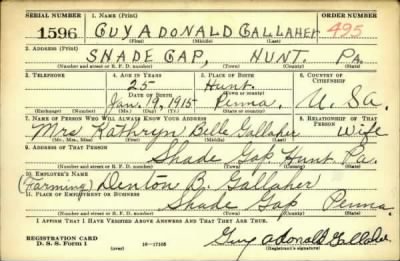 SERIAL NUMBER 1. NAME (Print) ORDER NUMBER
1596 GUY ADONALD GALLAHER 495
(First) (Middle) (Last)
2. ADDRESS (Print)
SHADE GAP, HUNT. PA.
(Number and street or R. F. D. number) (Town) (County) (State)
3. TELEPHONE 4. AGE IN YEARS 5. PLACE OF BIRTH 6. COUNTRY OF CITIZENSHIP
25 Hunt.
DATE OF BIRTH (Town or county)
Jan. 19, 1915 Penna. U.S.A.
(Exchange) (Number) (Mo.) (Day) (Yr.) (State or country)
7. NAME OF PERSON WHO WILL ALWAYS KNOW YOUR ADDRESS 8. RELATIONSHIP OF THAT PERSON
Mrs Kathryn Belle Gallaher wife
(Mr., Mrs., Miss) (First) (Middle) (Last)
9. ADDRESS OF THAT PERSON
Shade Gap Hunt. Pa.
(Number and street or R. F. D. number) (Town) (County) (State)
10. EMPLOYER'S NAME
(Farming) Denton B. Gallaher
11. PLACE OF EMPLOYMENT OR BUSINESS
Shade Gap Penna.
(Number and street or R. F. D. number) (Town) (County) (State)
I AFFIRM THAT I HAVE VERIFIED ABOVE ANSWERS AND THAT THEY ARE TRUE.
REGISTRATION CARD
D. S. S. Form 1 (over) 16—17105 Guy adonald Gallaher
(Registrant's signature)